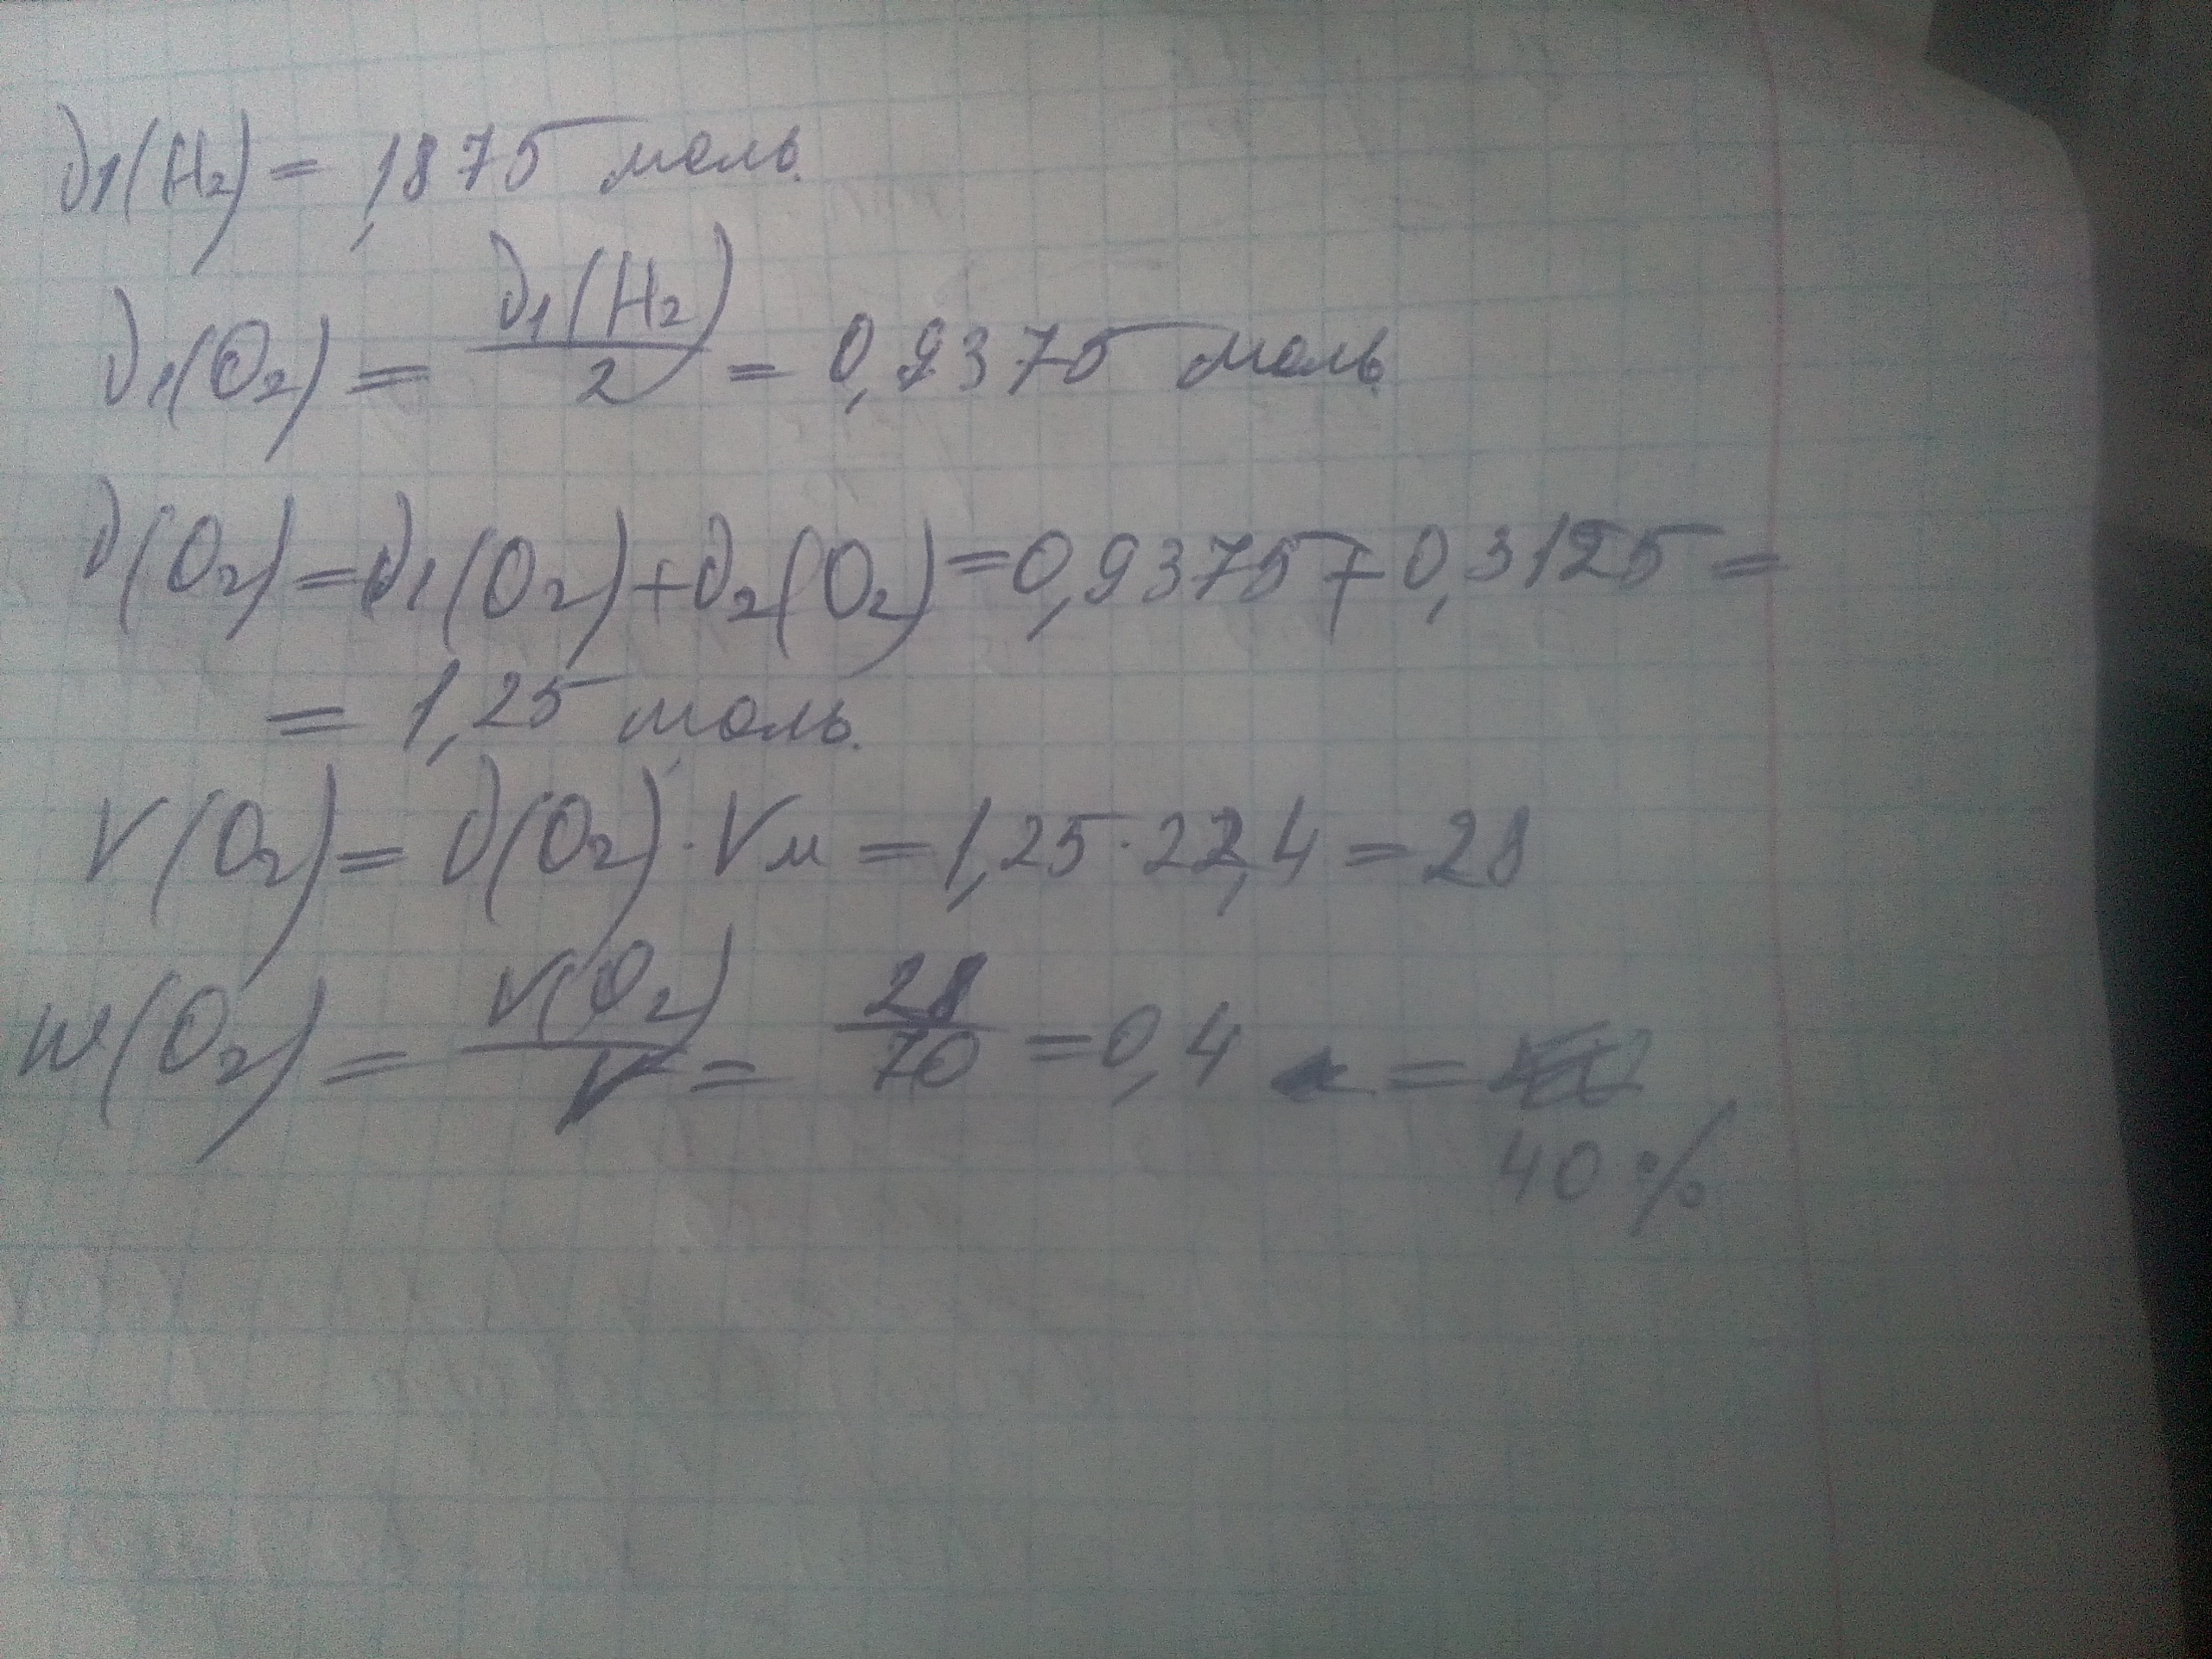 ν1(H2) = 1,875 моль.
ν1(O2) = ν1(H2)/2 = 0,9375 моль.
ν(O2) = ν1(O2) + ν2(O2) = 0,9375 + 0,3125 =
= 1,25 моль.
V(O2) = ν(O2) · Vм = 1,25 · 22,4 = 28
W(O2) = V(O2)/V = 28/70 = 0,4 =
40%